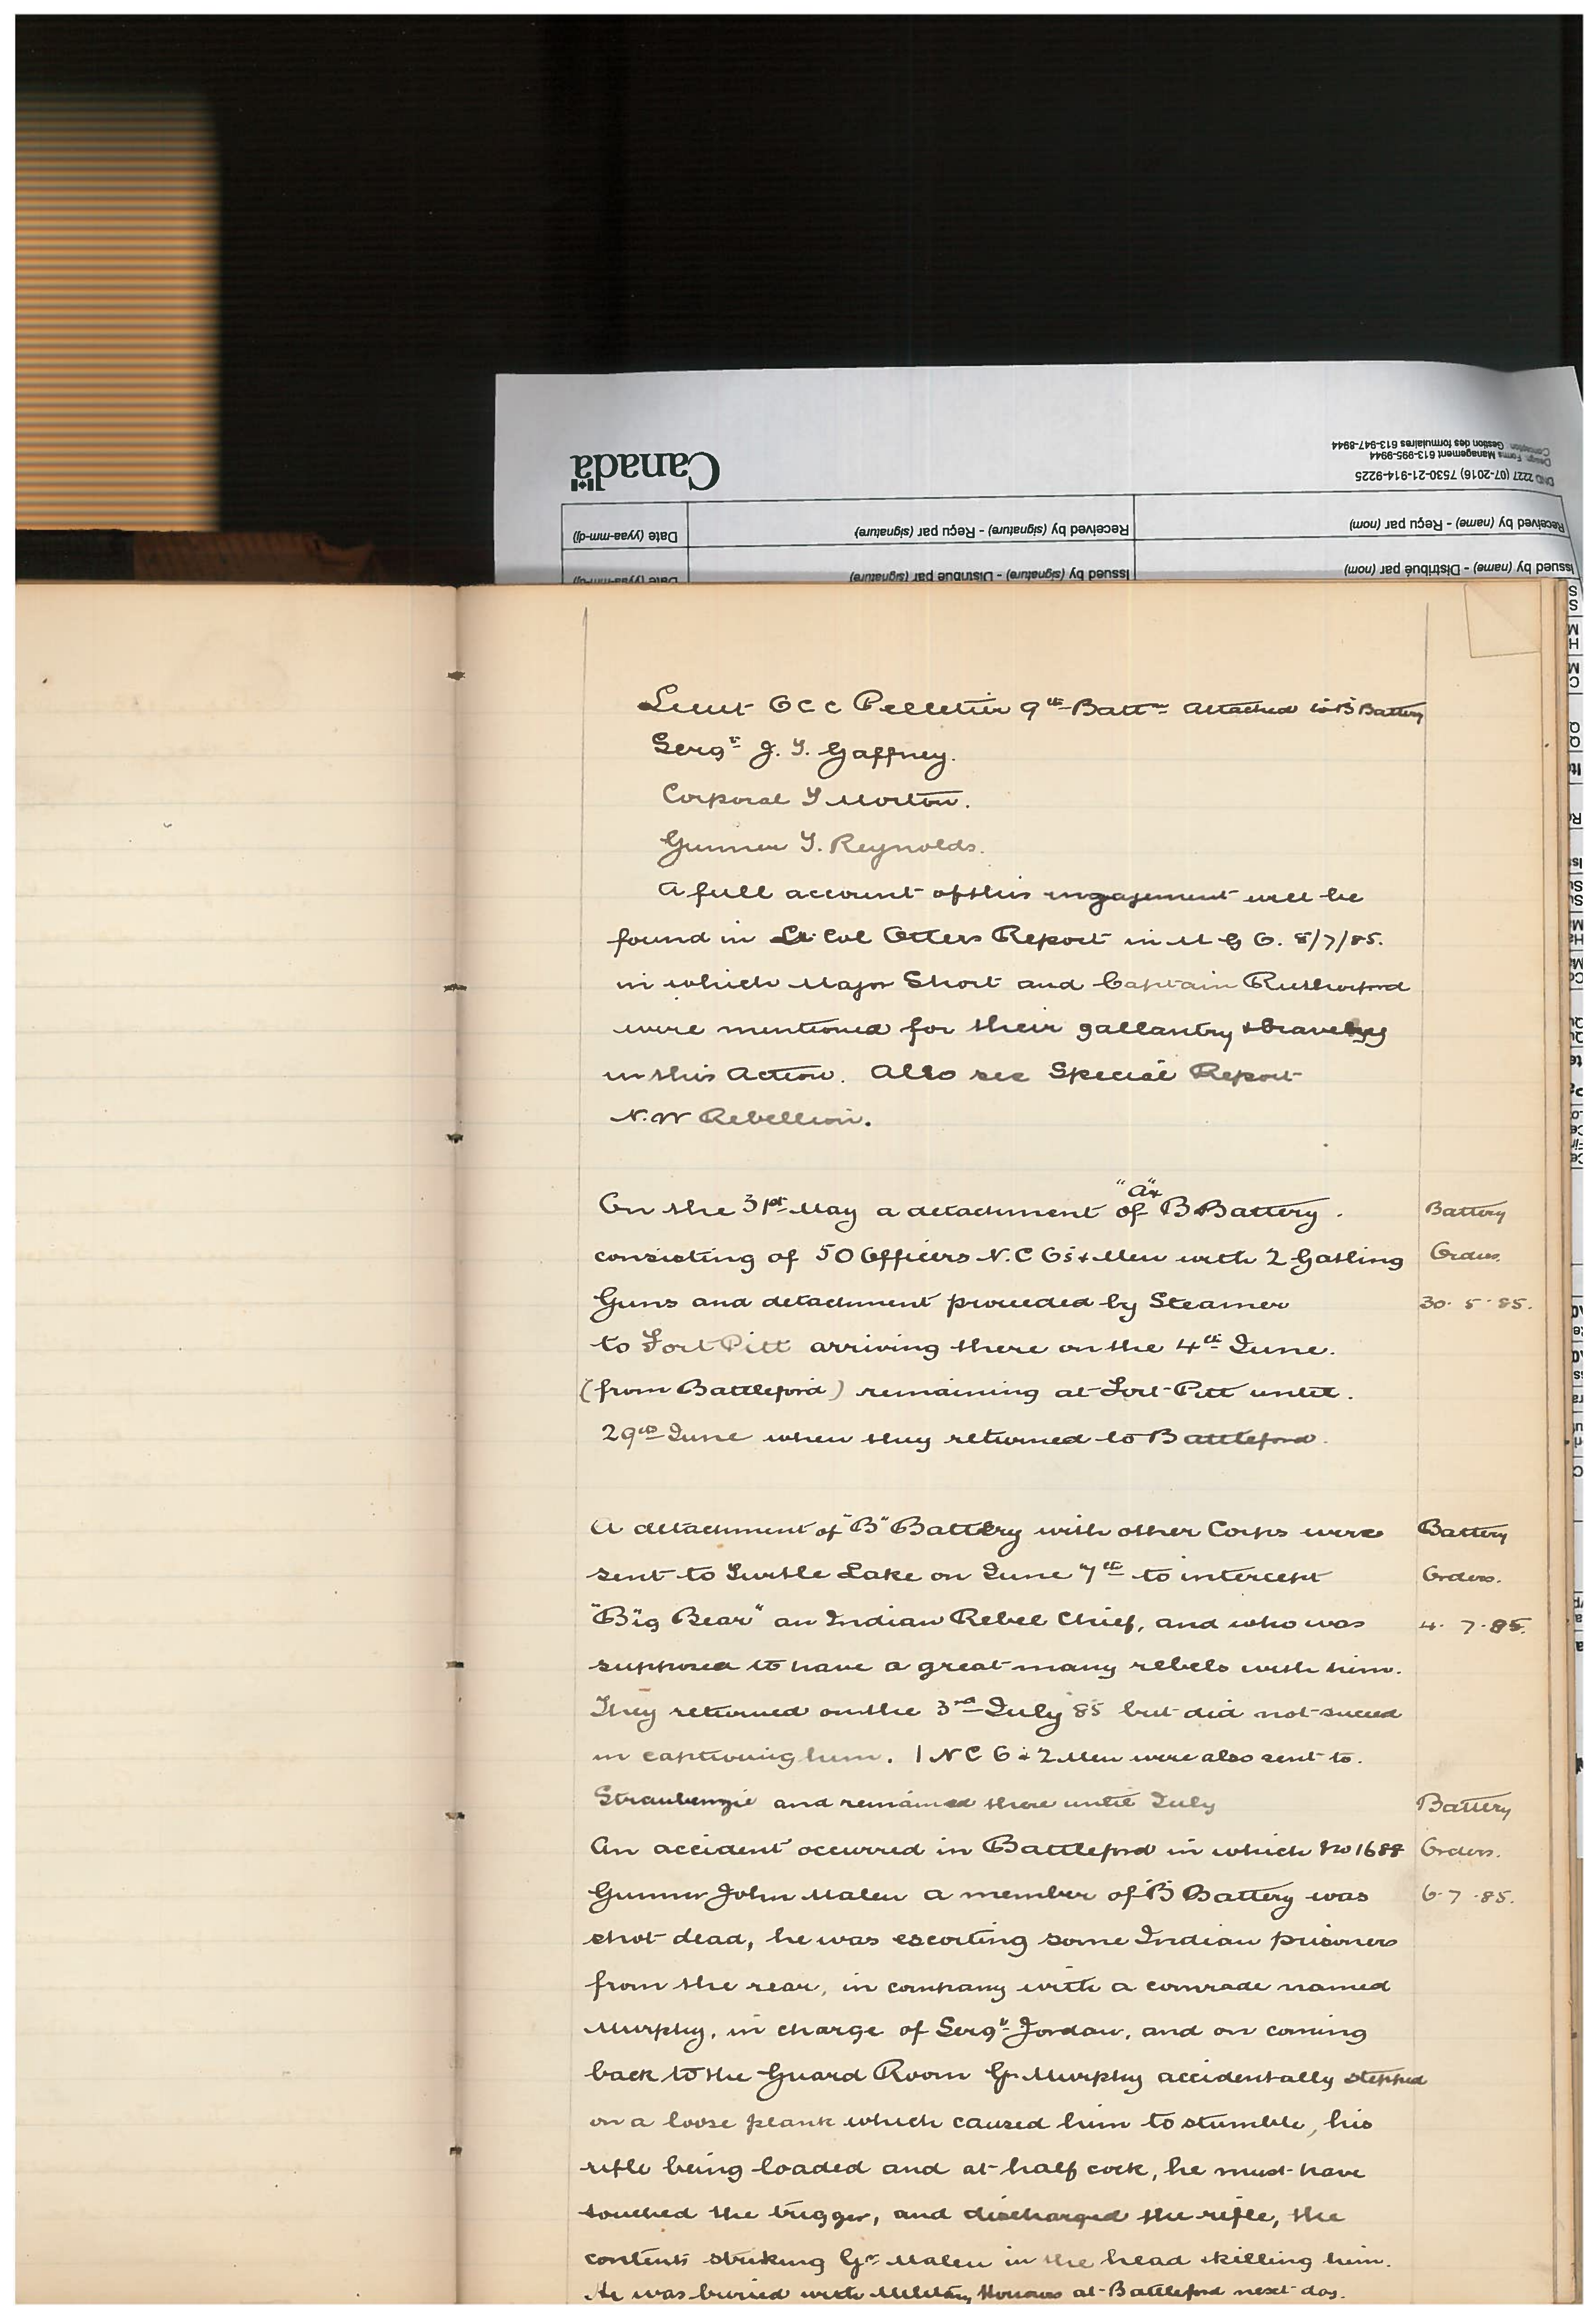 Canada
DND 2227 (07-2016) 7530-21-914-9225
Design: Forms Management 613-995-9944
Conception: Gestion des formulaires 613-947-8944
Received by (name) - Reçu par (nom)
Received by (signature) - Reçu par (signature)
Date (yyaa-mm-dj)
Issued by (name) - Distribué par (nom)
Issued by (signature) - Distribué par (signature)
Date (yyaa-mm-dj)
Lieut O C C Pelletier 9th Battn attached to B Battery
Sergt J. T. Gaffney.
Corporal T Morton.
Gunner T. Reynolds.
A full account of this engagement will be
found in Lt Col Otters Report in M G O. 8/7/85.
in which Major Short and Captain Rutherford
were mentioned for their gallantry & bravery
in this Action. Also see Special Report
N.W Rebellion.
On the 31st May a detachment of "A" & B Battery.
consisting of 50 Officers N.C O's & Men with 2 Gatling
Guns and detachment proceeded by Steamer
to Fort Pitt arriving there on the 4th June.
(from Battleford) remaining at Fort Pitt until.
29th June when they returned to Battleford.
Battery
Orders.
30. 5. 85.
A detachment of "B" Battery with other Corps were
sent to Turtle Lake on June 7th to intercept
"Big Bear" an Indian Rebel Chief, and who was
supposed to have a great many rebels with him.
They returned on the 3rd July 85 but did not succeed
in capturing him. 1 N C O & 2 Men were also sent to.
Straubenzie and remained there until July
Battery
Orders.
4. 7. 85.
An accident occurred in Battleford in which No 1688
Gunner John Malen a member of B Battery was
shot dead, he was escorting some Indian prisoners
from the rear, in company with a comrade named
Murphy, in charge of Sergt Jordan, and on coming
back to the Guard Room Gr Murphy accidentally stepped
on a loose plank which caused him to stumble, his
rifle being loaded and at half cock, he must have
touched the trigger, and discharged the rifle, the
contents striking Gr Malen in the head & killing him.
He was buried with Military Honours at Battleford next day.
Battery
Orders.
6. 7. 85.